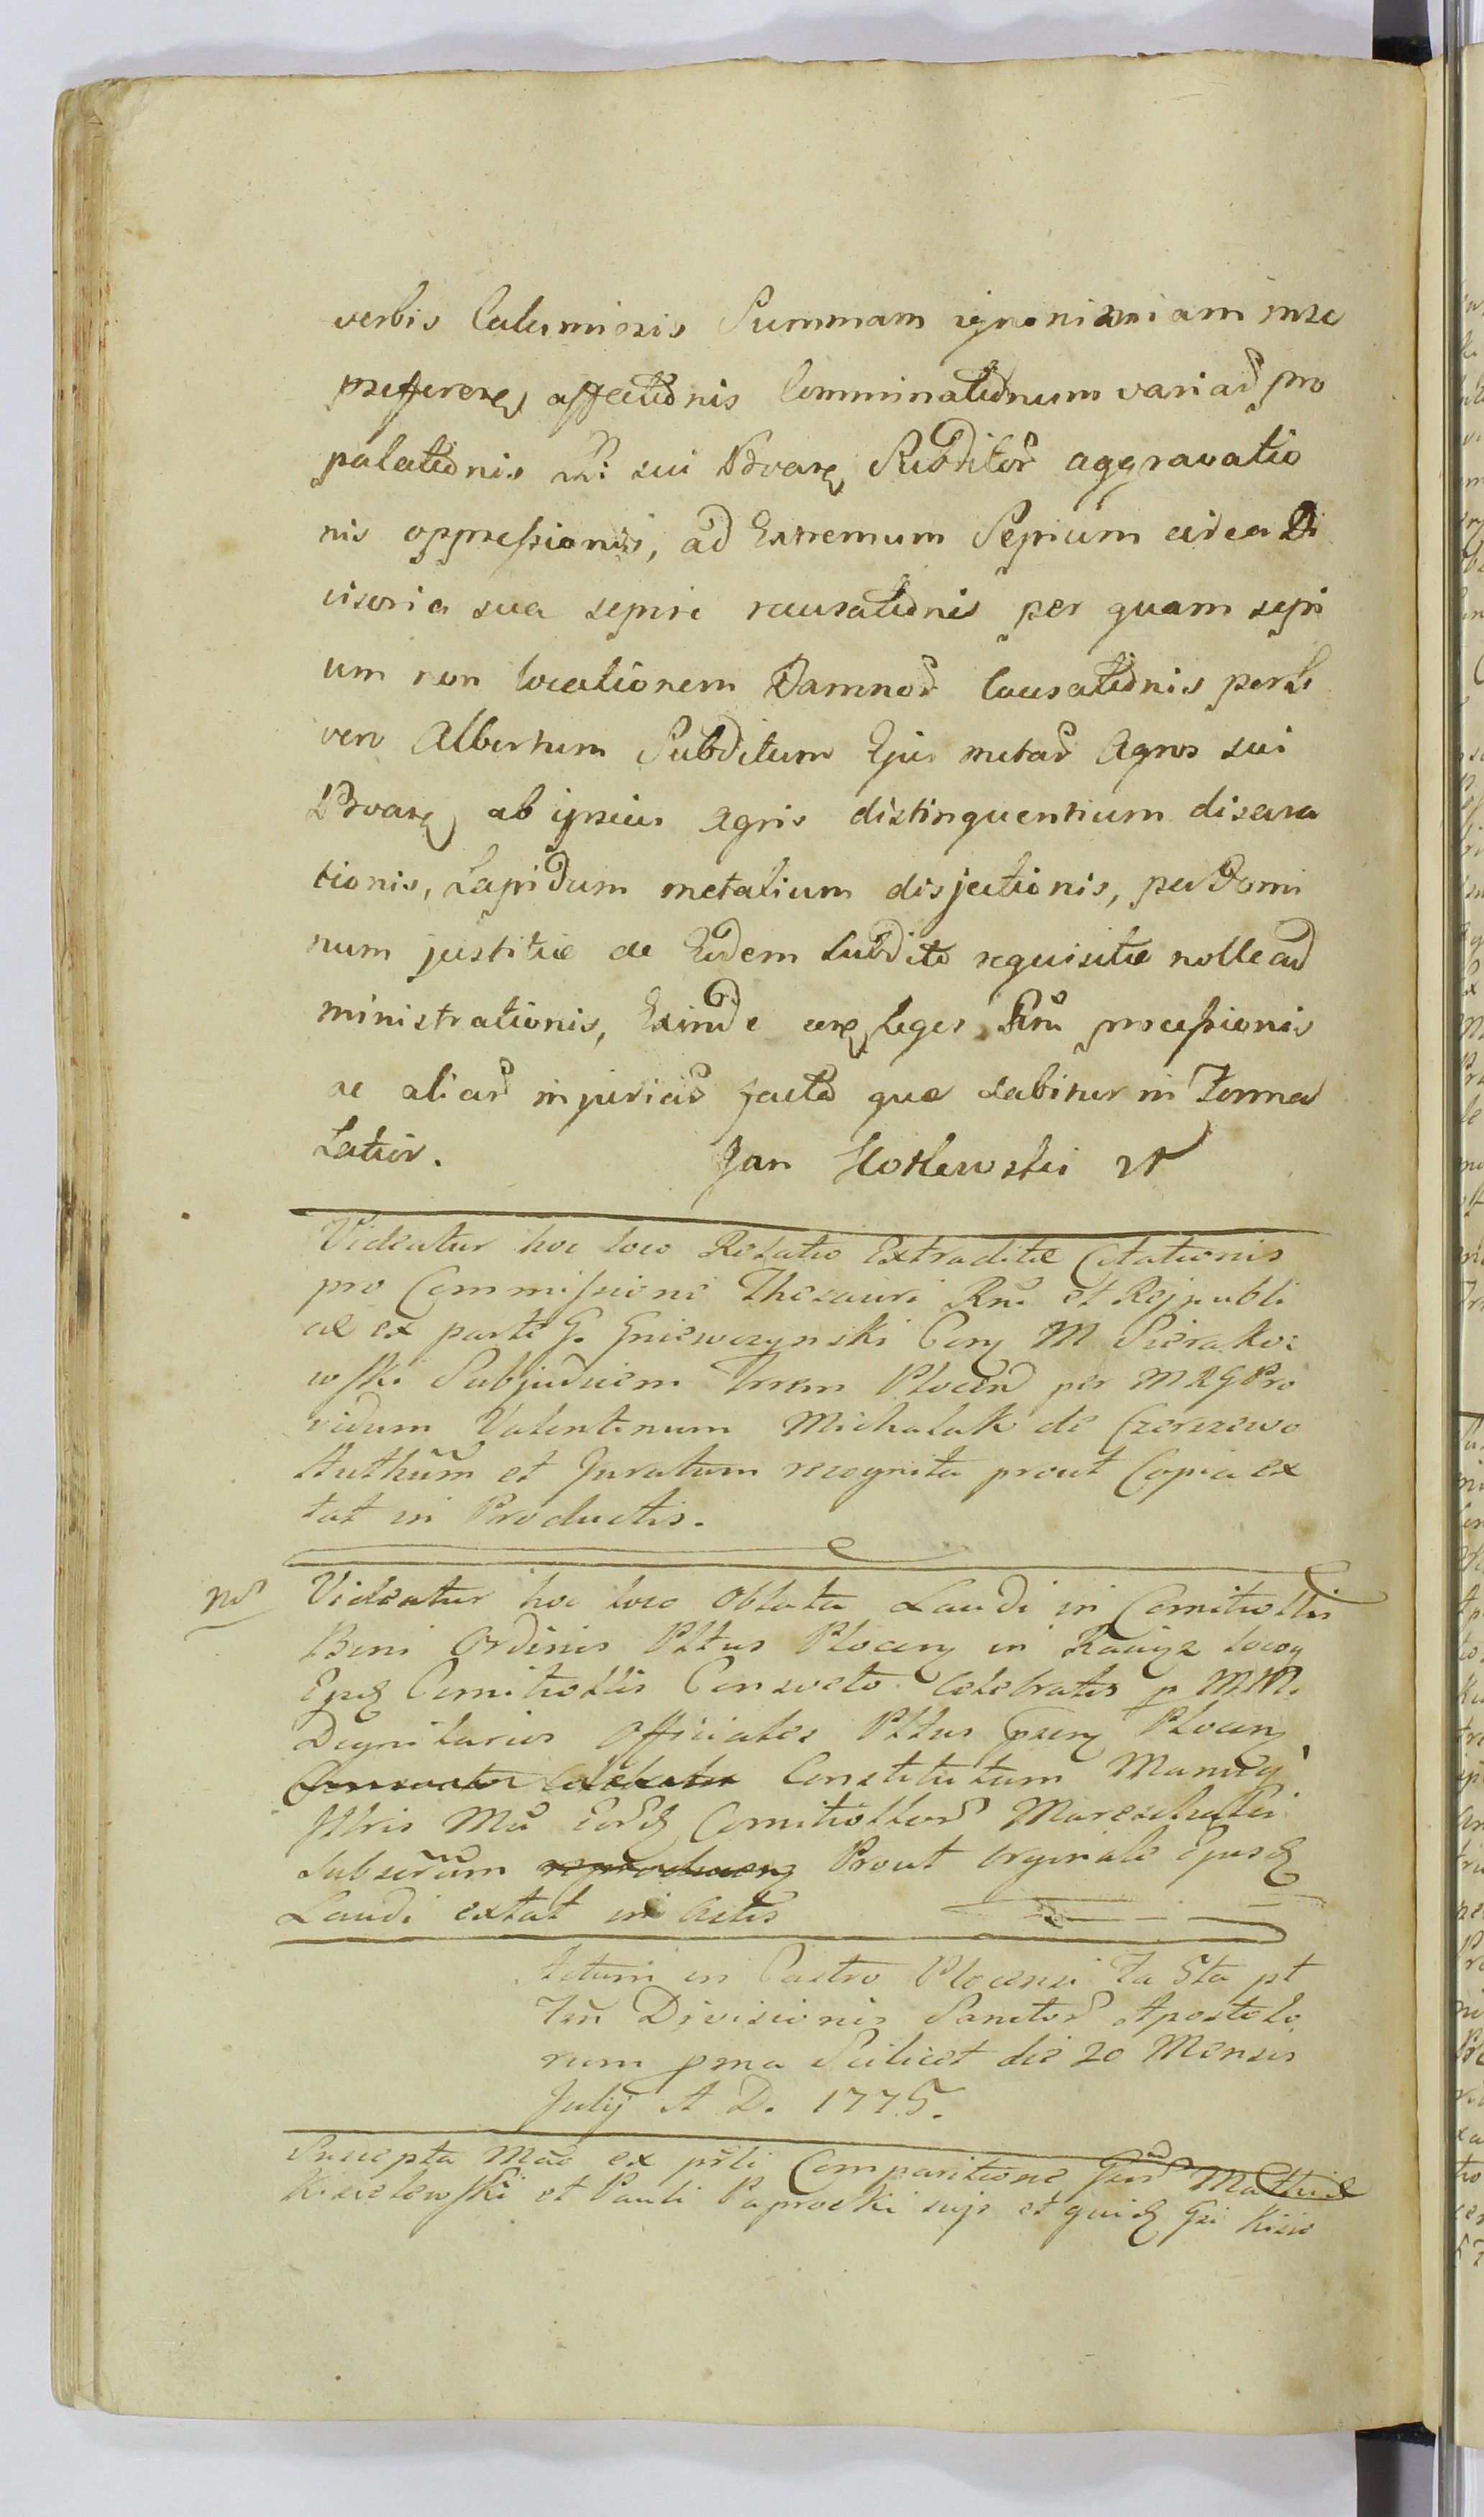 verbis Calumiosis Summam ignonimiam in se
præfferen affectionis Comminationum variar pro
palationis R: sui Pvoare Subditor aggravatio
nis oppressionis, ad Extremum Sepium circa Di
visoria sua sepire recusationis per quam sepi
um non locationem Damnor Causationis per L
vero Albertum Subditum Ejus metar Agros sui
Pvoare ab ipsius Agris distinguentium disara
tionis, Lapidum metalium disjectionis, per Domi
num justitiæ de Eodem Subdito requisitæ nolle ad
ministrationis, Exinde leges Rni processionis
ac aliar injuriar facta quæ dabitur in Termo
Latior. Jan Kozłowski
Videatur hoc loco Relatio Extraditæ Citationis
pro Commissione Thesauri Rni et Rejpubli
cæ ex parte G. Gniewczynski Con M Sierako:
wski Subjudicem Trrem Plocen per MRG Pro
vidum Valentinum Michalak de Czerszewo
Authum et Juratum recognita prout Copia ex
tat in Productis.
Nd Videatur hoc loco Oblata Laudi in Comitiollis
Boni Ordinis Pltus Plocen in Raciąz locon
Epd Comitiollis Consveto celebratis p MM.
Dignitarios Officiales Pltus Plocen
Constitutum Manu
Jllris Mci Eord Comitiollord Mareschalci
Subscrum Prout Orginale Ejusd
Laudi extat in Actis
Actum in Castro Plocensi Fa 5ta pt
Fm Divisionis Sanctor Apostolo
rum pma Scilicet die 20 Mensis
July A D. 1775.
Suscepta Mao ex psli Comparitione Gsor Mathiæ
Kisielewski et Pauli Paprocki suis et quid Gsi Kisie